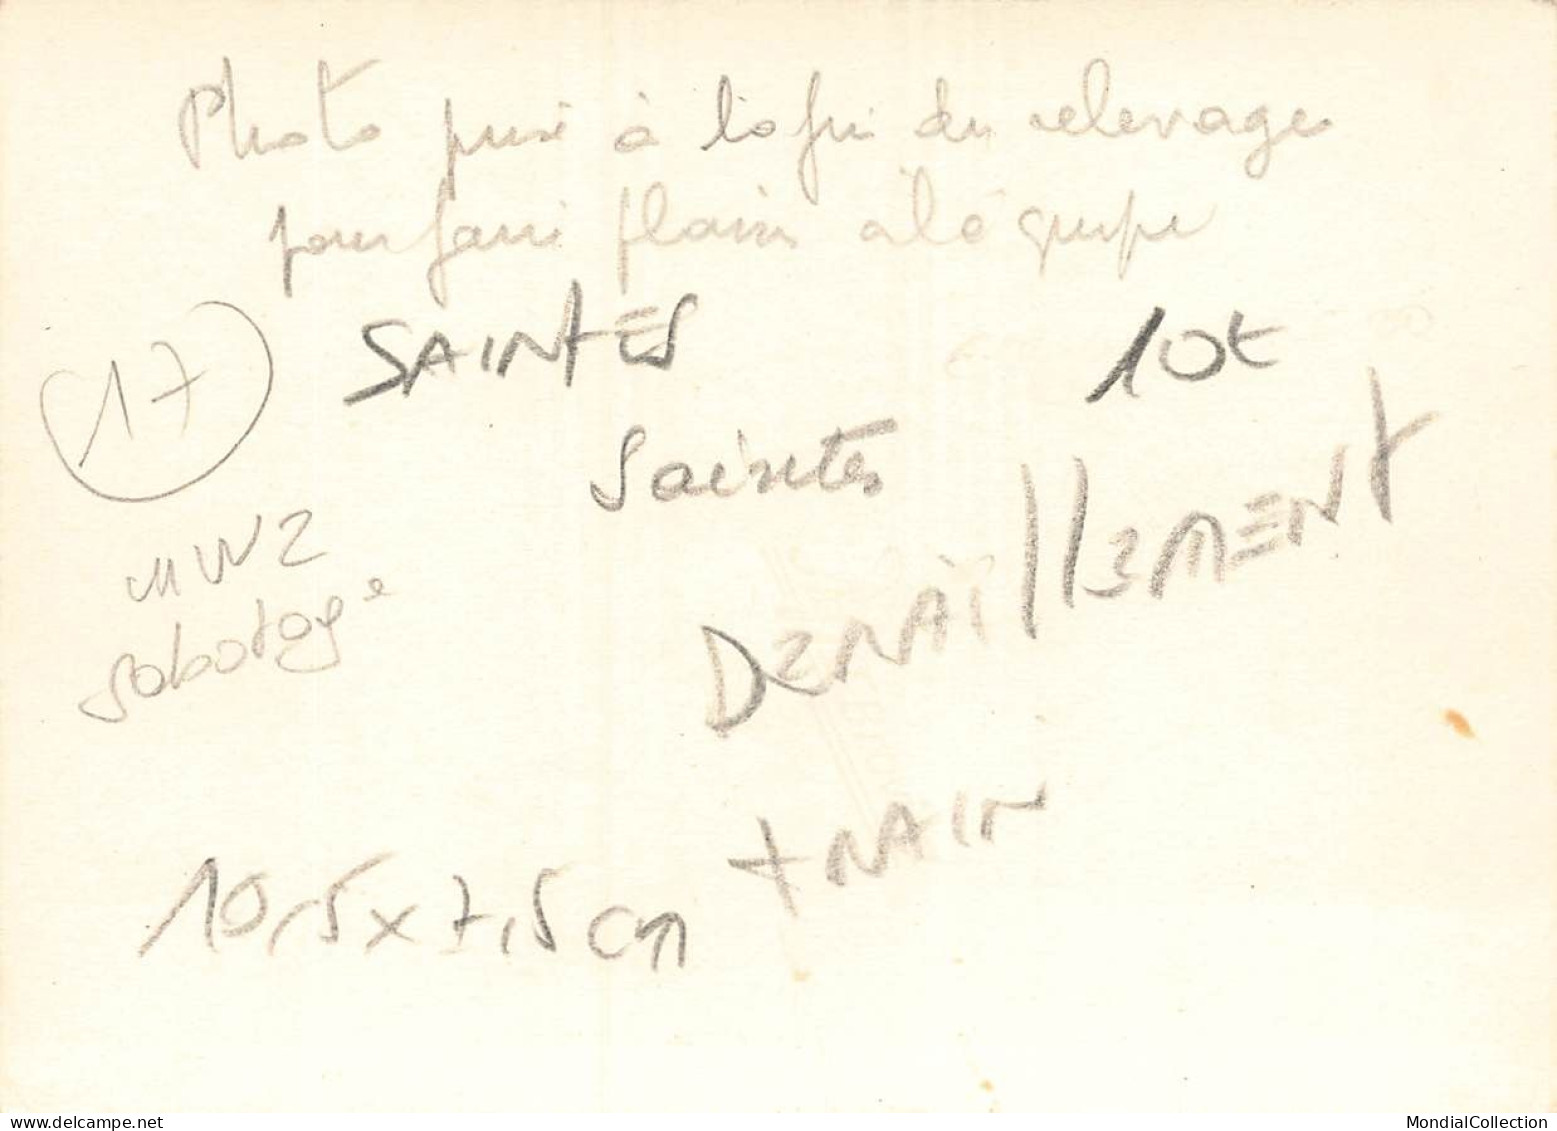 Photo prise à la fin du relevage
pour faire plaisir à l'équipe
SAINTES
10€
17
Saintes
WW2
sabotage
DERAILLEMENT
TRAIN
10,5 x 7,5 cm
MondialCollection